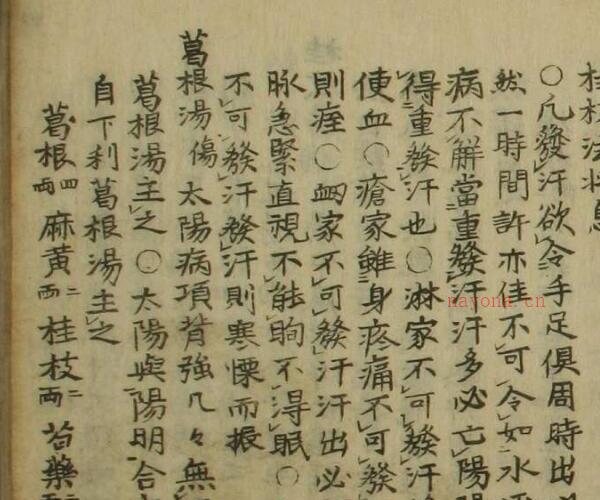 桂枝法将息
○凡發汗欲令手足俱周時出
然一時間許亦佳不可令如水
病不解當重發汗汗多必亡陽
得重發汗也○淋家不可發汗
便血○瘡家雖身疼痛不可發
則痓○衂家不可發汗汗出必
脉急緊直視不能眴不得眠○
不可發汗發汗則寒慄而振
葛根湯傷太陽病項背強几々無
葛根湯主之○太陽與陽明合
自下利葛根湯主之
葛根四兩麻黃二兩桂枝二兩芍藥
nayona.cn